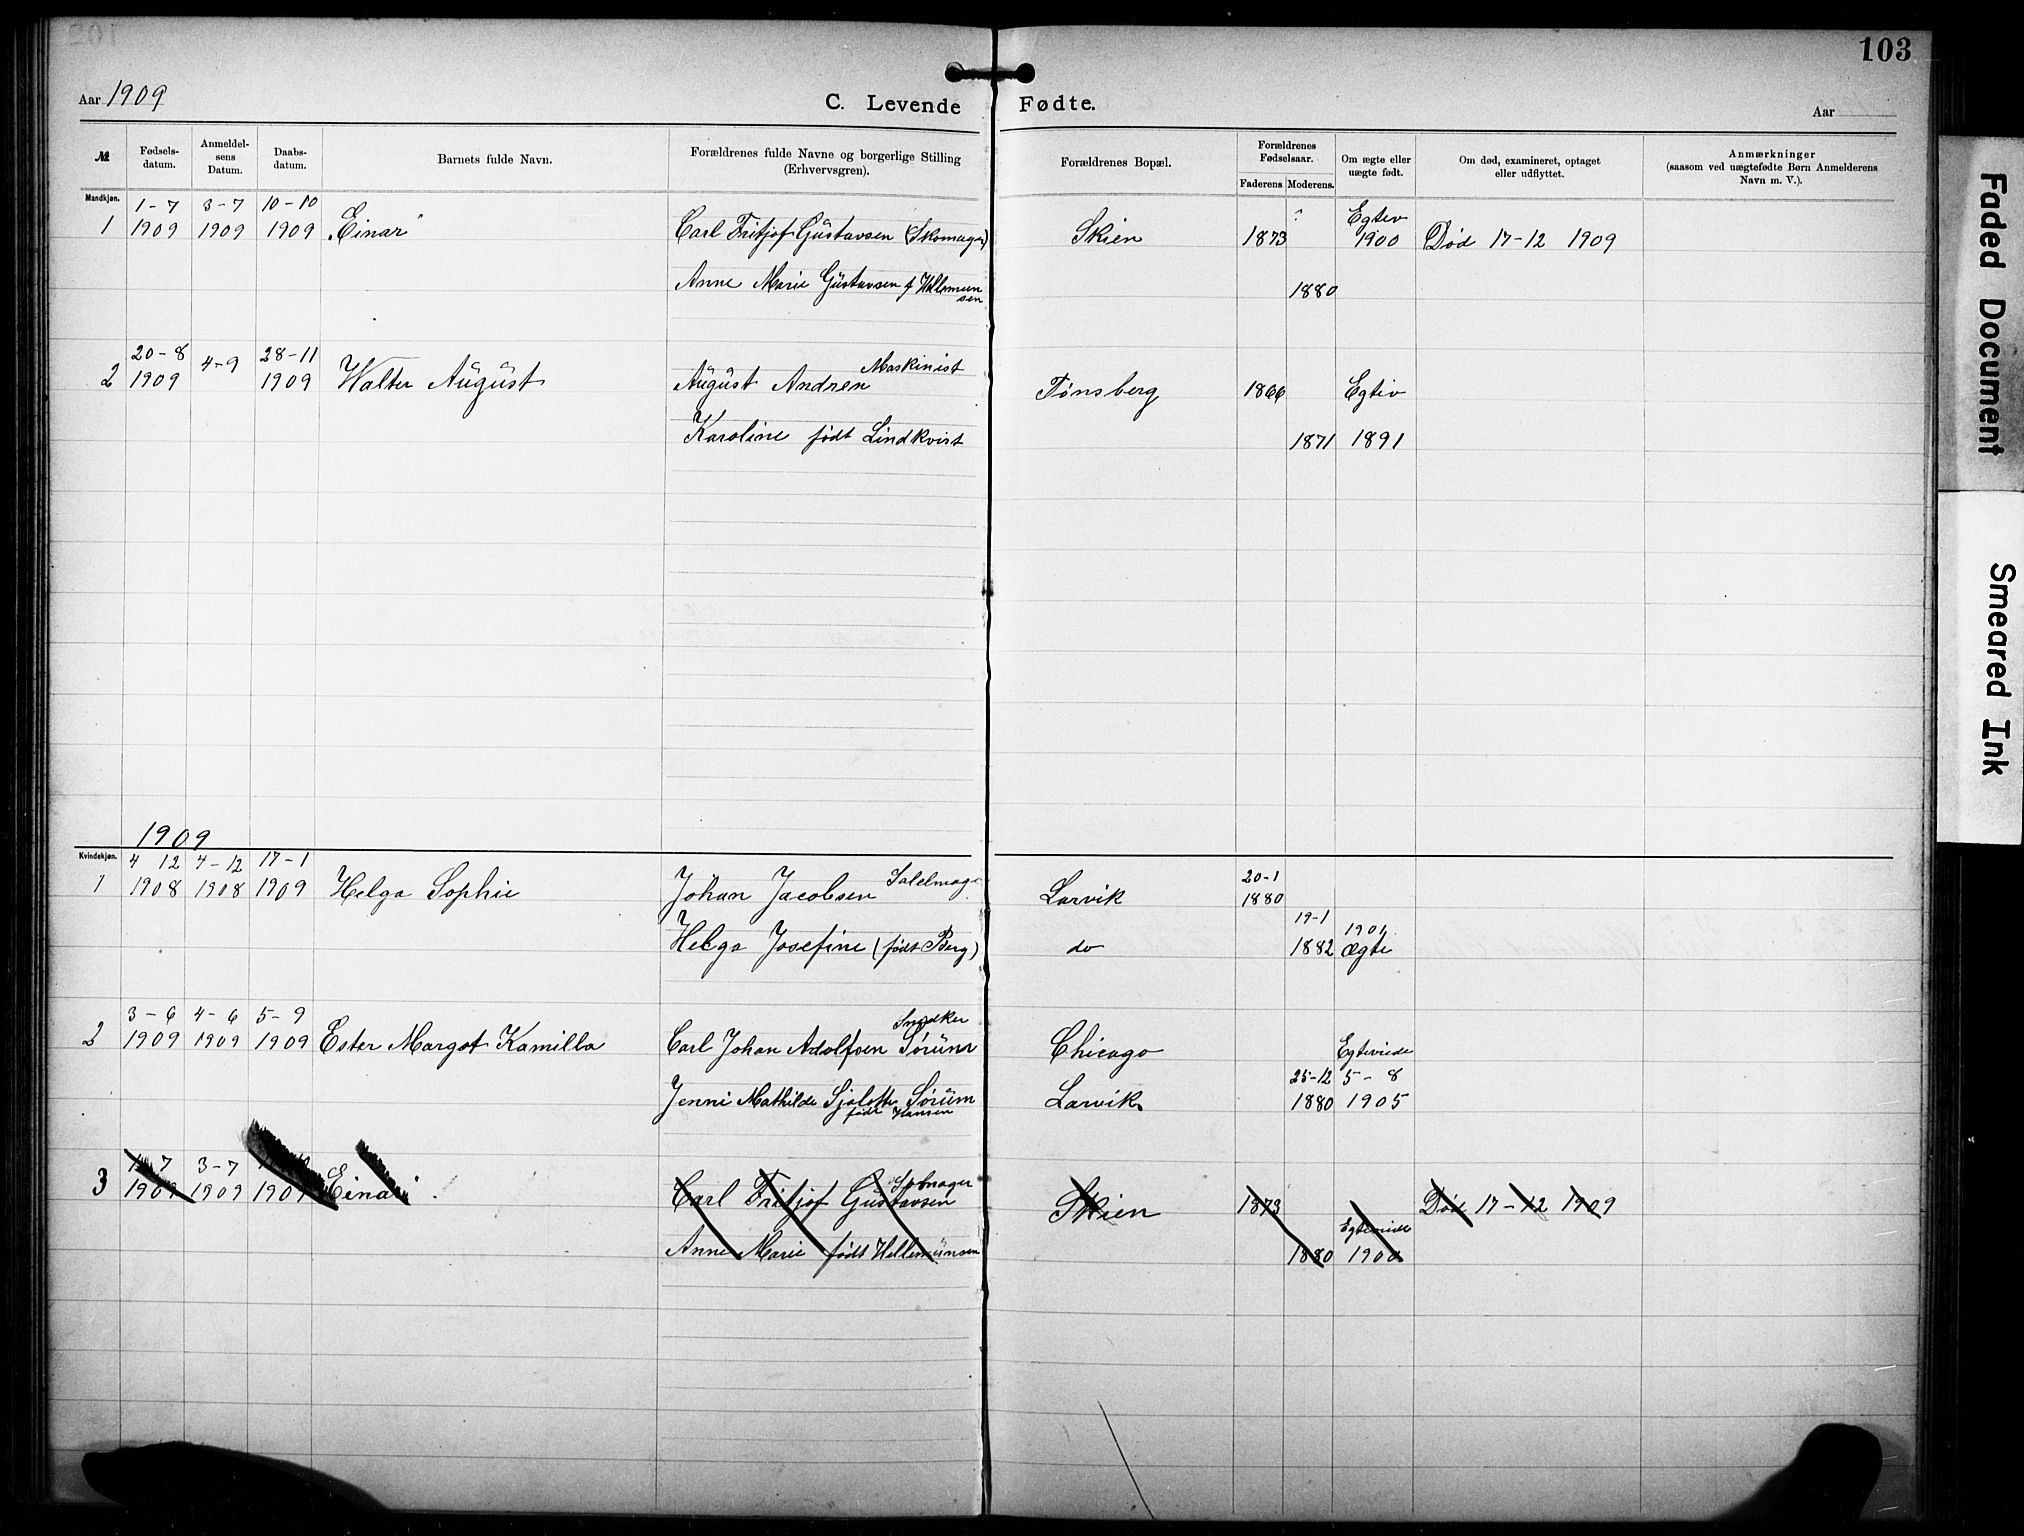 103
Aar 1909
C. Levende Fødte.
Aar
№
Fødsels-
datum.
Anmeldel-
sens
Datum.
Daabs-
datum.
Barnets fulde Navn.
Forældrenes fulde Navne og borgerlige Stilling
(Erhvervsgren).
Forældrenes Bopæl.
Forældrenes
Fødselsaar.
Faderens
Moderens.
Om ægte eller
uægte født.
Om død, examineret, optaget
eller udflyttet.
Anmærkninger
(saasom ved uægtefødte Børn Anmelderens
Navn m. V.).
Mandkjøn.
1-7 3-7 10-10 Egtev
1 1909 1909 1909 "Einar" Carl Fritjof Gustavsen (Skomager) Skien 1873 1900 Død 17-12 1909
Anne Marie Gustavsen f Hellemun 1880
sen
20-8 4-9 28-11 Maskinist
2 1909 1909 Walter August August Andren Tønsberg 1866 Egtev
Karoline født Lindkvist 1871 1891
1909
Kvindekjøn.
4 12 4-12 17-1 20-1
1 1908 1908 1909 Helga Sophie Johan Jacobsen Larvik 1880
19-1 1901
Helga Josefine (født Berg) do 1882 ægte
3-6 4-6 5-9 Snedker
2 1909 1909 1909 Ester Margot Kamilla Carl Johan Adolfsen Sørum Chicago
25-12 5-8
Jenni Mathilde Sjalotte Sørum Larvik 1880 1905
født Hansen
7 3-7
3 1909 1909 1909 Einar Carl Fritjof Gustavsen Skien 1873 Død 17-12 1909
Anne Marie født Hellemunsen 1880 1900
Faded Document
Smeared Ink